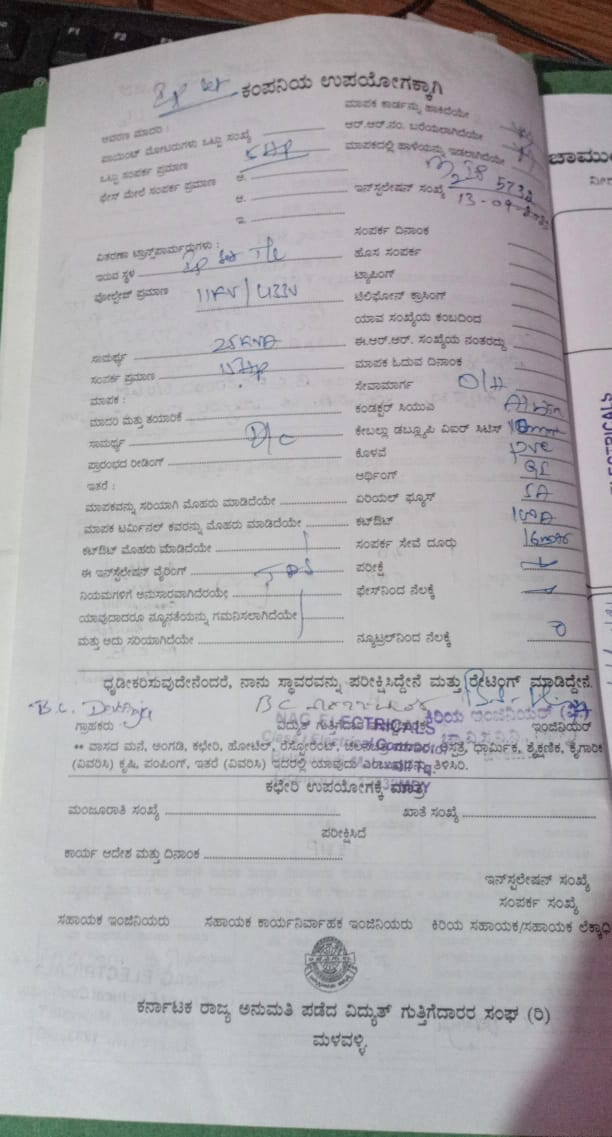 IP Set ಕಂಪನಿಯ ಉಪಯೋಗಕ್ಕಾಗಿ
ಮಾಪಕ ಕಾರ್ಡನ್ನು ಹಾಕಿದೆಯೇ
ಆವರಣ ಮಾದರಿ :
ಆರ್.ಆರ್.ನಂ. ಬರೆಯಲಾಗಿದೆಯೇ
ಪಾಯಿಂಟ್ ಮೋಟರುಗಳು ಒಟ್ಟು ಸಂಖ್ಯೆ
ಮಾಪಕದಲ್ಲಿ ಹಾಳೆಯನ್ನು ಇಡಲಾಗಿದೆಯೇ
ಒಟ್ಟು ಸಂಪರ್ಕ ಪ್ರಮಾಣ 5 HP
ಫೇಸ್ ಮೇಲೆ ಸಂಪರ್ಕ ಪ್ರಮಾಣ ಅ.
ಆ. ಇನ್‌ಸ್ಟಲೇಷನ್ ಸಂಖ್ಯೆ 5732
ಇ. 13-09-
ಸಂಪರ್ಕ ದಿನಾಂಕ
ವಿತರಣಾ ಟ್ರಾನ್ಸ್‌ಪಾರ್ಮರುಗಳು :
ಹೊಸ ಸಂಪರ್ಕ
ಇರುವ ಸ್ಥಳ IP Set T/c
ಟ್ಯಾಪಿಂಗ್
ವೋಲ್ಟೇಜ್ ಪ್ರಮಾಣ 11KV/433V
ಟೆಲಿಫೋನ್ ಕ್ರಾಸಿಂಗ್
ಯಾವ ಸಂಖ್ಯೆಯ ಕಂಬದಿಂದ
ಸಾಮರ್ಥ್ಯ 25KVA ಈ.ಆರ್.ಆರ್. ಸಂಖ್ಯೆಯ ನಂತರದ್ದು
ಸಂಪರ್ಕ ಪ್ರಮಾಣ ಮಾಪಕ ಓದುವ ದಿನಾಂಕ
ಮಾಪಕ : ಸೇವಾಮಾರ್ಗ O/H
ಮಾದರಿ ಮತ್ತು ತಯಾರಿಕೆ ಕಂಡಕ್ಟರ್ ಸಿಯುವಿ
ಸಾಮರ್ಥ್ಯ D/c ಕೇಬಲ್ಲು ಡಬ್ಲ್ಯೂಪಿ ವಿಐರ್ ಸಿಟಿಸ್
ಪ್ರಾರಂಭದ ರೀಡಿಂಗ್ ಕೊಳವೆ PVC
ಇತರೆ : ಆರ್ಥಿಂಗ್ GI
ಮಾಪಕವನ್ನು ಸರಿಯಾಗಿ ಮೊಹರು ಮಾಡಿದೆಯೇ ಏರಿಯಲ್ ಫ್ಯೂಸ್ 5A
ಮಾಪಕ ಟರ್ಮಿನಲ್ ಕವರನ್ನು ಮೊಹರು ಮಾಡಿದೆಯೇ ಕಟ್‌ಔಟ್
ಕಟ್‌ಔಟ್ ಮೊಹರು ಮಾಡಿದೆಯೇ ಸಂಪರ್ಕ ಸೇವೆ ದೂರು
ಈ ಇನ್‌ಸ್ಟಲೇಷನ್ ವೈರಿಂಗ್ ಪರೀಕ್ಷೆ
ನಿಯಮಗಳಿಗೆ ಅನುಸಾರವಾಗಿದೆರಯೇ ಫೇಸ್‌ನಿಂದ ನೆಲಕ್ಕೆ
ಯಾವುದಾದರೂ ನ್ಯೂನತೆಯನ್ನು ಗಮನಿಸಲಾಗಿದೆಯೇ
ಮತ್ತು ಅದು ಸರಿಯಾಗಿದೆಯೇ ನ್ಯೂಟ್ರಲ್‌ನಿಂದ ನೆಲಕ್ಕೆ 0
ಧೃಡೀಕರಿಸುವುದೇನೆಂದರೆ, ನಾನು ಸ್ಥಾವರವನ್ನು ಪರೀಕ್ಷಿಸಿದ್ದೇನೆ ಮತ್ತು ರೇಟಿಂಗ್ ಮಾಡಿದ್ದೇನೆ.
B.C.
ಗ್ರಾಹಕರು ವಿದ್ಯುತ್ ಗುತ್ತಿಗೆದಾರರ ಕಿರಿಯ ಇಂಜಿನಿಯರ್
NAC ELECTRICALS ಇಂಜಿನಿಯರ್
** ವಾಸದ ಮನೆ, ಅಂಗಡಿ, ಕಛೇರಿ, ಹೋಟೆಲ್, ರೆಸ್ಟೋರೆಂಟ್, ಆಸ್ಪತ್ರೆ, ಧಾರ್ಮಿಕ, ಶೈಕ್ಷಣಿಕ, ಕೈಗಾರಿಕೆ
(ವಿವರಿಸಿ) ಕೃಷಿ, ಪಂಪಿಂಗ್, ಇತರೆ (ವಿವರಿಸಿ) ಇದರಲ್ಲಿ ಯಾವುದು ಎಂಬುವುದನ್ನು ತಿಳಿಸಿರಿ.
ಕಛೇರಿ ಉಪಯೋಗಕ್ಕೆ ಮಾತ್ರ
ಮಂಜೂರಾತಿ ಸಂಖ್ಯೆ ಖಾತೆ ಸಂಖ್ಯೆ
ಪರೀಕ್ಷಿಸಿದೆ
ಕಾರ್ಯ ಆದೇಶ ಮತ್ತು ದಿನಾಂಕ
ಇನ್‌ಸ್ಟಲೇಷನ್ ಸಂಖ್ಯೆ
ಸಂಪರ್ಕ ಸಂಖ್ಯೆ
ಸಹಾಯಕ ಇಂಜಿನಿಯರು ಸಹಾಯಕ ಕಾರ್ಯನಿರ್ವಾಹಕ ಇಂಜಿನಿಯರು ಕಿರಿಯ ಸಹಾಯಕ/ಸಹಾಯಕ ಲೆಕ್ಕಾಧಿ
ಕರ್ನಾಟಕ ರಾಜ್ಯ ಅನುಮತಿ ಪಡೆದ ವಿದ್ಯುತ್ ಗುತ್ತಿಗೆದಾರರ ಸಂಘ (ರಿ)
ಮಳವಳ್ಳಿ.
ಚಾಮುಂ